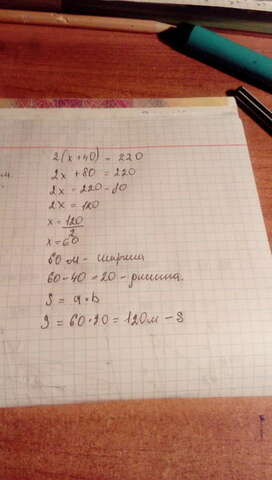 2(x+40) = 220
2x + 80 = 220
2x = 220 - 80
2x = 120
x = 120/2
x = 60
60 м - ширина
60 - 40 = 20 - длинна.
S = a · b
S = 60 · 20 = 120 м - S